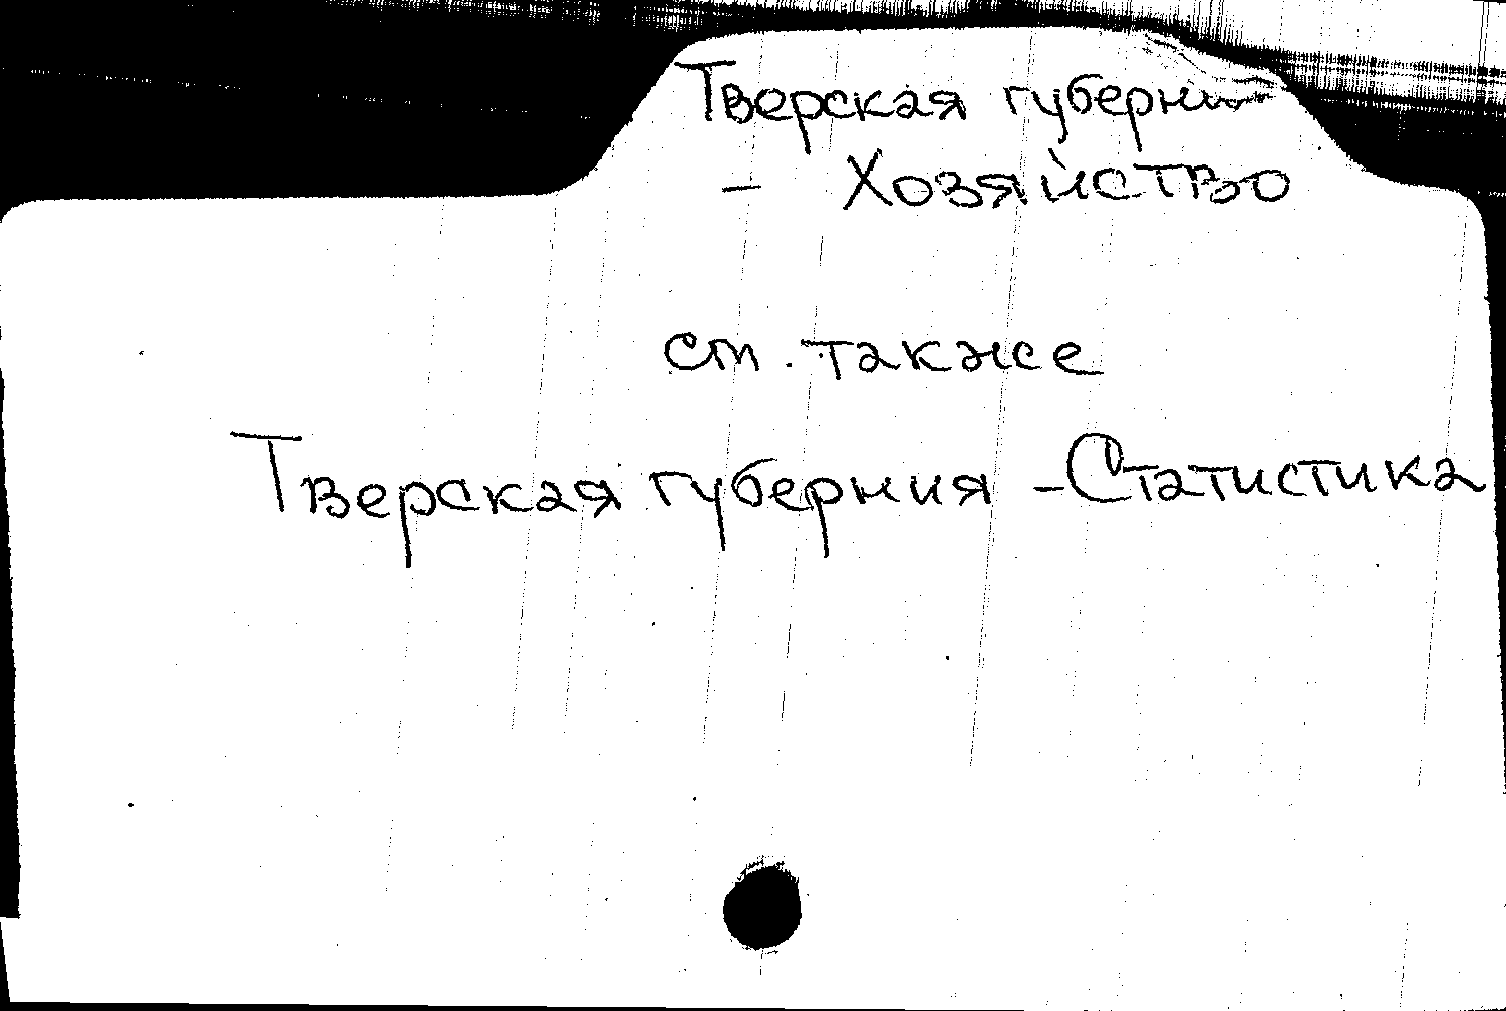 Тверская губерния
- Хозяйство
см. также
Тверская губерния - Статистика